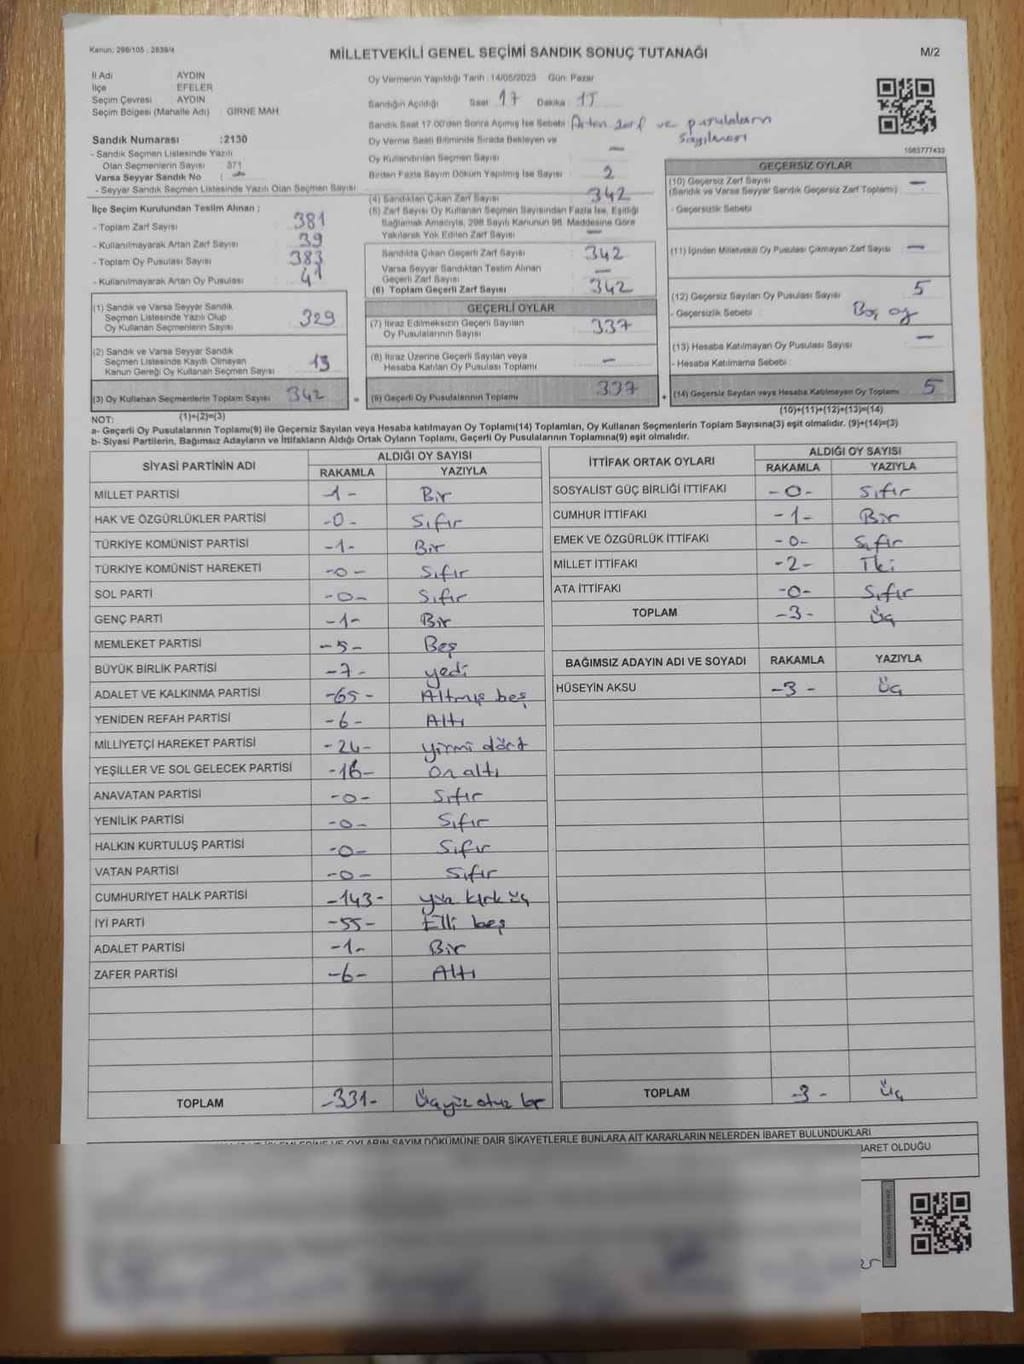 Kanun: 298/105 ; 2839/4
MİLLETVEKİLİ GENEL SEÇİMİ SANDIK SONUÇ TUTANAĞI
M/2
İl Adı AYDIN
İlçe EFELER
Seçim Çevresi AYDIN
Seçim Bölgesi (Mahalle Adı) GİRNE MAH
Sandık Numarası :2130
- Sandık Seçmen Listesinde Yazılı
Olan Seçmenlerin Sayısı 371
Varsa Seyyar Sandık No : —
- Seyyar Sandık Seçmen Listesinde Yazılı Olan Seçmen Sayısı
Oy Vermenin Yapıldığı Tarih :14/05/2023 Gün: Pazar
Sandığın Açıldığı Saat 17 Dakika 15
Sandık Saat 17.00'den Sonra Açılmış İse Sebebi Artan zarf ve pusulaların
sayılması
Oy Verme Saati Bitiminde Sırada Bekleyen ve
Oy Kullandırılan Seçmen Sayısı —
Birden Fazla Sayım Döküm Yapılmış İse Sayısı 2
1083777433
İlçe Seçim Kurulundan Teslim Alınan ;
- Toplam Zarf Sayısı 381
- Kullanılmayarak Artan Zarf Sayısı 39
- Toplam Oy Pusulası Sayısı 383
- Kullanılmayarak Artan Oy Pusulası 41
(1) Sandık ve Varsa Seyyar Sandık
Seçmen Listesinde Yazılı Olup
Oy Kullanan Seçmenlerin Sayısı 329
(2) Sandık ve Varsa Seyyar Sandık
Seçmen Listesinde Kayıtlı Olmayan
Kanun Gereği Oy Kullanan Seçmen Sayısı 13
(3) Oy Kullanan Seçmenlerin Toplam Sayısı 342
(1)+(2)=(3)
(4) Sandıktan Çıkan Zarf Sayısı 342
(5) Zarf Sayısı Oy Kullanan Seçmen Sayısından Fazla İse, Eşitliği
Sağlamak Amacıyla, 298 Sayılı Kanunun 98. Maddesine Göre
Yakılarak Yok Edilen Zarf Sayısı —
Sandıkta Çıkan Geçerli Zarf Sayısı 342
Varsa Seyyar Sandıktan Teslim Alınan
Geçerli Zarf Sayısı —
(6) Toplam Geçerli Zarf Sayısı 342
GEÇERLİ OYLAR
(7) İtiraz Edilmeksizin Geçerli Sayılan
Oy Pusulalarının Sayısı 337
(8) İtiraz Üzerine Geçerli Sayılan veya
Hesaba Katılan Oy Pusulası Toplamı —
= (9) Geçerli Oy Pusulalarının Toplamı 337
GEÇERSİZ OYLAR
(10) Geçersiz Zarf Sayısı
(Sandık ve Varsa Seyyar Sandık Geçersiz Zarf Toplamı) —
- Geçersizlik Sebebi
(11) İçinden Milletvekili Oy Pusulası Çıkmayan Zarf Sayısı —
(12) Geçersiz Sayılan Oy Pusulası Sayısı 5
- Geçersizlik Sebebi Boş oy
(13) Hesaba Katılmayan Oy Pusulası Sayısı —
- Hesaba Katılmama Sebebi :
+ (14) Geçersiz Sayılan veya Hesaba Katılmayan Oy Toplamı 5
(10)+(11)+(12)+(13)=(14)
NOT:
a- Geçerli Oy Pusulalarının Toplamı(9) ile Geçersiz Sayılan veya Hesaba katılmayan Oy Toplamı(14) Toplamları, Oy Kullanan Seçmenlerin Toplam Sayısına(3) eşit olmalıdır. (9)+(14)=(3)
b- Siyasi Partilerin, Bağımsız Adayların ve İttifakların Aldığı Ortak Oyların Toplamı, Geçerli Oy Pusulalarının Toplamına(9) eşit olmalıdır.
SİYASİ PARTİNİN ADI ALDIĞI OY SAYISI
RAKAMLA YAZIYLA
MİLLET PARTİSİ -1- Bir
HAK VE ÖZGÜRLÜKLER PARTİSİ -0- Sıfır
TÜRKİYE KOMÜNİST PARTİSİ -1- Bir
TÜRKİYE KOMÜNİST HAREKETİ -0- Sıfır
SOL PARTİ -0- Sıfır
GENÇ PARTİ -1- Bir
MEMLEKET PARTİSİ -5- Beş
BÜYÜK BİRLİK PARTİSİ -7- yedi
ADALET VE KALKINMA PARTİSİ -65- Altmış beş
YENİDEN REFAH PARTİSİ -6- Altı
MİLLİYETÇİ HAREKET PARTİSİ -24- yirmi dört
YEŞİLLER VE SOL GELECEK PARTİSİ -16- On altı
ANAVATAN PARTİSİ -0- Sıfır
YENİLİK PARTİSİ -0- Sıfır
HALKIN KURTULUŞ PARTİSİ -0- Sıfır
VATAN PARTİSİ -0- Sıfır
CUMHURİYET HALK PARTİSİ -143- yüz kırk üç
İYİ PARTİ -55- Elli beş
ADALET PARTİSİ -1- Bir
ZAFER PARTİSİ -6- Altı
TOPLAM -331- Üçyüz otuz bir
İTTİFAK ORTAK OYLARI ALDIĞI OY SAYISI
RAKAMLA YAZIYLA
SOSYALİST GÜÇ BİRLİĞİ İTTİFAKI -0- Sıfır
CUMHUR İTTİFAKI -1- Bir
EMEK VE ÖZGÜRLÜK İTTİFAKI -0- Sıfır
MİLLET İTTİFAKI -2- İki
ATA İTTİFAKI -0- Sıfır
TOPLAM -3- Üç
BAĞIMSIZ ADAYIN ADI VE SOYADI RAKAMLA YAZIYLA
HÜSEYİN AKSU -3- Üç
TOPLAM -3- Üç
OYLARIN SAYIM DÖKÜMÜNE DAİR ŞİKAYETLERLE BUNLARA AİT KARARLARIN NELERDEN İBARET BULUNDUKLARI
İBARET OLDUĞU